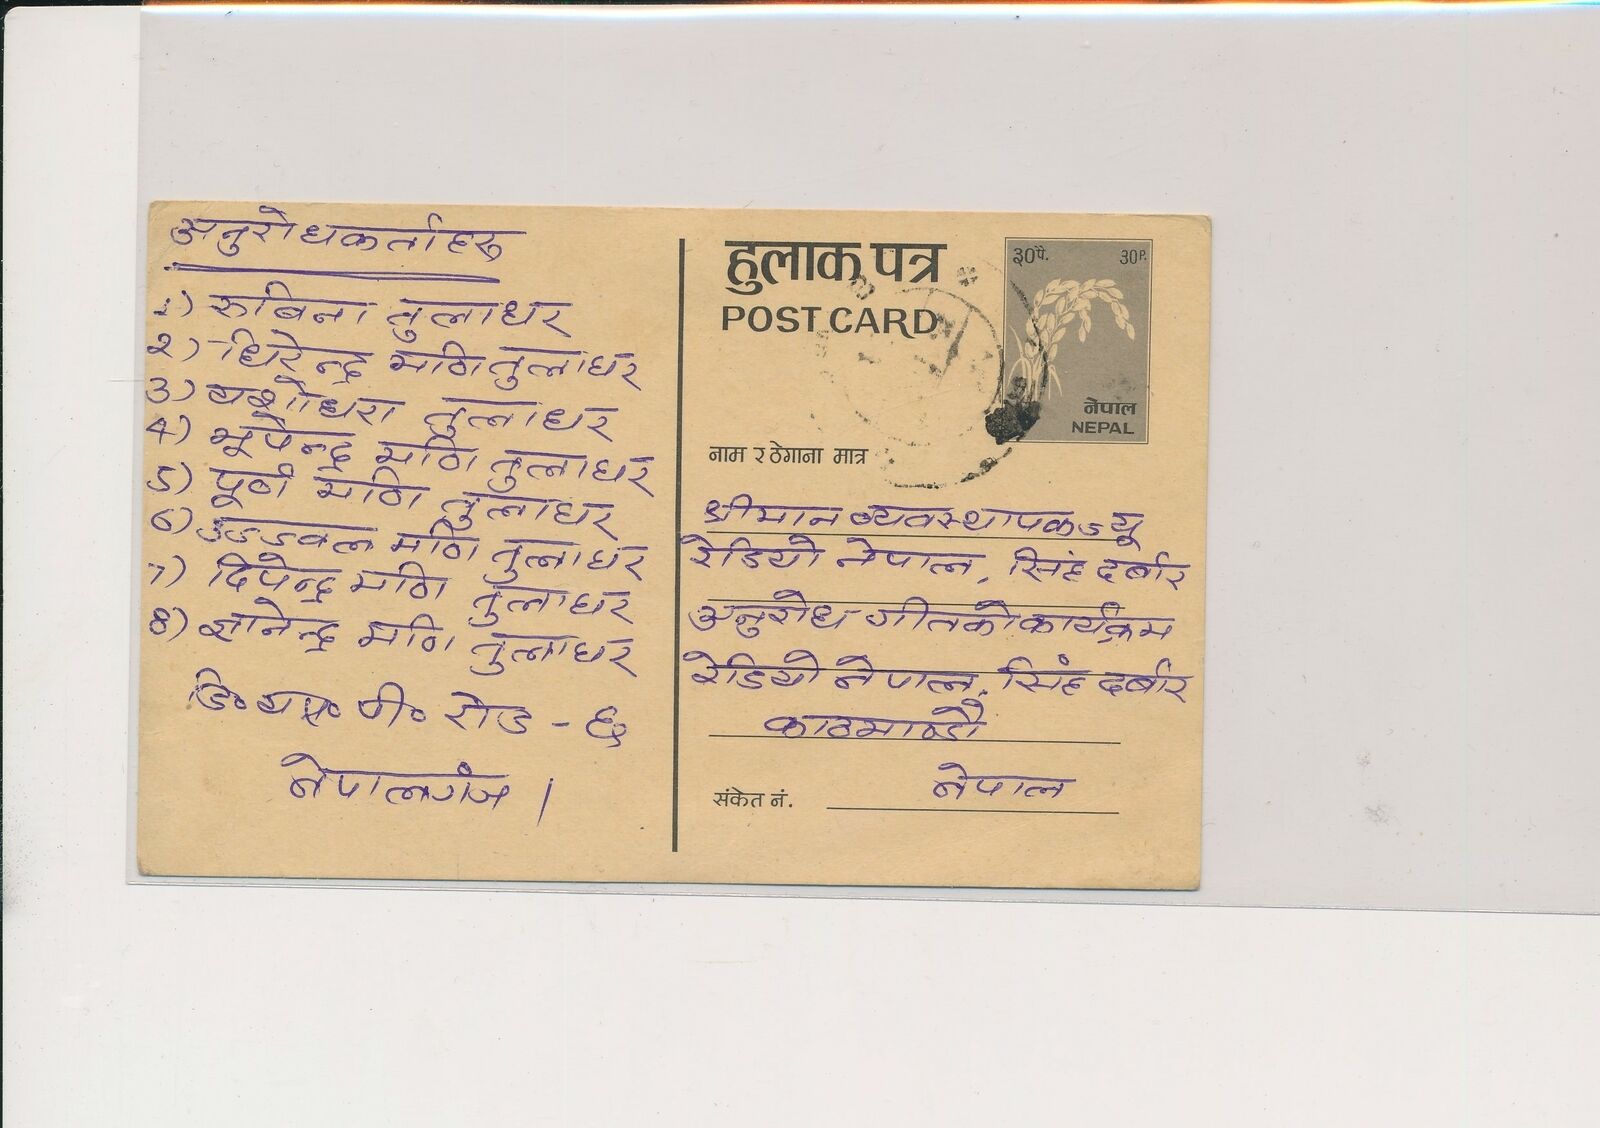 अनुरोधकर्ताहरु
1) रुबिना तुलाधर
२) धिरेन्द्र मणि तुलाधर
3) यशोधरा तुलाधर
4) भूपेन्द्र मणि तुलाधर
5) पूर्ण मणि तुलाधर
6) उज्ज्वल मणि तुलाधर
7) दिपेन्द्र मणि तुलाधर
8) ज्ञानेन्द्र मणि तुलाधर
डि॰ यस॰ पी॰ रोड - ६
नेपालगंज ।
हुलाक पत्र
POST CARD
३०पै. 30P.
नेपाल
NEPAL
नाम र ठेगाना मात्र
श्रीमान व्यवस्थापकज्यू
रेडियो नेपाल, सिंह दर्बार
अनुरोध गीतको कार्यक्रम
रेडियो नेपाल, सिंह दर्बार
काठमाण्डौ
नेपाल
संकेत नं.